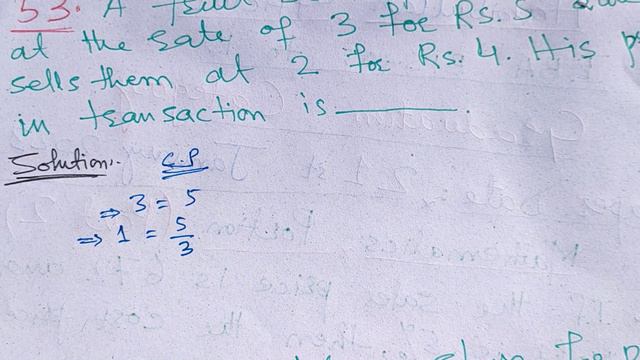 53. A for Rs. 5
at the rate of 3 for Rs. 5
sells them at 2 for Rs. 4. His
in transaction is ______.
Solution:. C.P
⇒ 3 = 5
⇒ 1 = 5/3